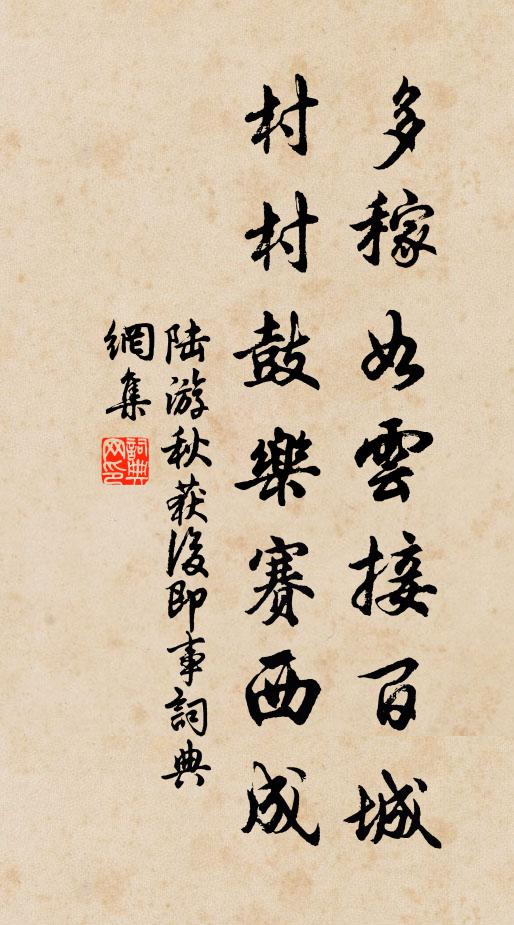 多稼如雲接百城
村村鼓樂賽西成
陸游秋获後即事詞典
網集
詞典
网印